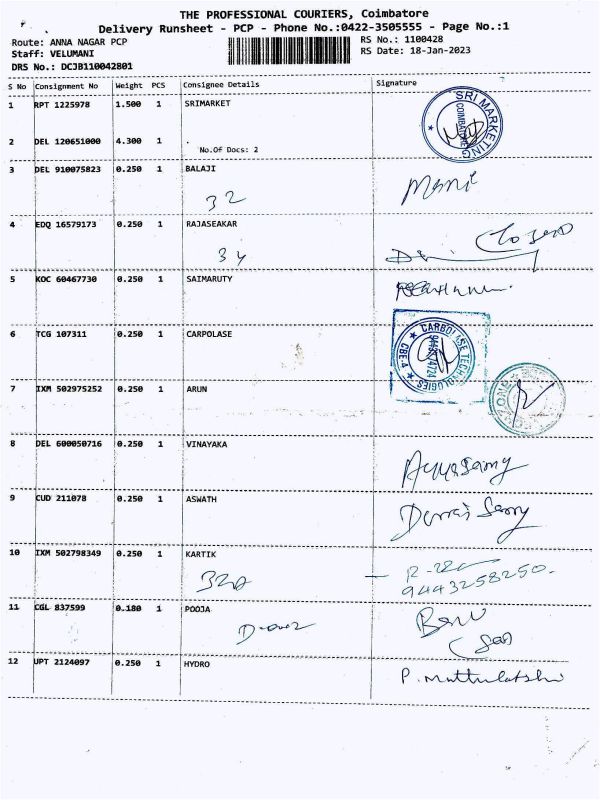 THE PROFESSIONAL COURIERS, Coimbatore
Delivery Runsheet - PCP - Phone No.:0422-3505555 - Page No.:1
Route: ANNA NAGAR PCP
RS No.: 1100428
Staff: VELUMANI
RS Date: 18-Jan-2023
DRS No.: DCJB110042801
S No Consignment No Weight PCS Consignee Details Signature
1 RPT 1225978 1.500 1 SRIMARKET
SRI MARKETING
COIMBATORE
2 DEL 120651000 4.300 1 .
No.Of Docs: 2
3 DEL 910075823 0.250 1 BALAJI
32
Mani
4 EDQ 16579173 0.250 1 RAJASEAKAR
34
5 KOC 60467730 0.250 1 SAIMARUTY
6 TCG 107311 0.250 1 CARPOLASE
CARBOLASE TECHNOLOGIES
CBE-4
7 IXM 502975252 0.250 1 ARUN
8 DEL 600050716 0.250 1 VINAYAKA
Ayyasamy
9 CUD 211078 0.250 1 ASWATH
10 IXM 502798349 0.250 1 KARTIK
9443258250.
11 CGL 837599 0.180 1 POOJA
12 UPT 2124097 0.250 1 HYDRO
P. Muthulakshmi